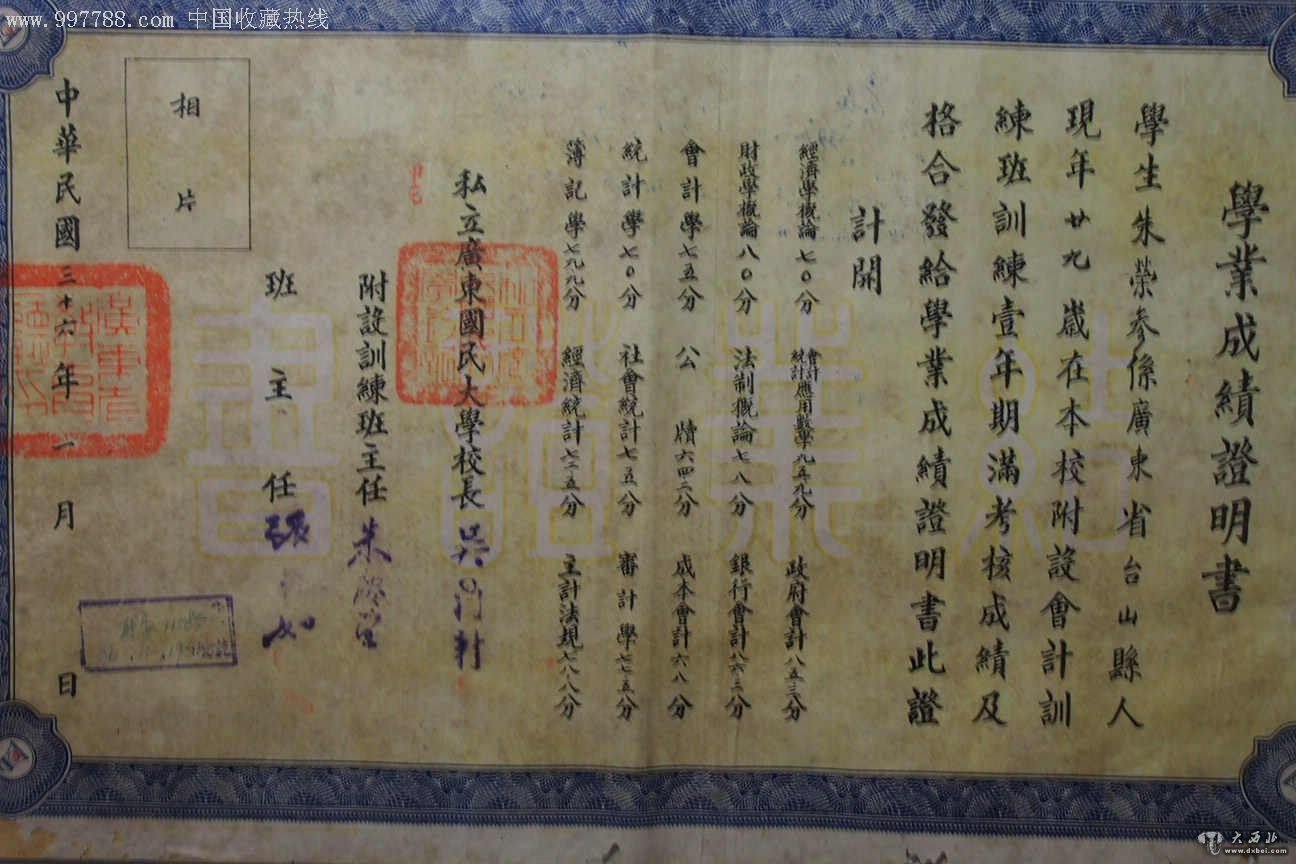 www.997788.com 中国收藏热线
學業成績證明書
學生朱榮參係廣東省台山縣人
現年廿九歲在本校附設會計訓
練班訓練壹年期滿考核成績及
格合發給學業成績證明書此證
計開
經濟學概論七0分 會計統計應用數學九五九分 政府會計八五三分
財政學概論八0分 法制概論七八分 銀行會計八六三分
會計學七五分 公牘六四二分 成本會計六八分
統計學七0分 社會統計七五分 審計學七七五分
簿記學七九九分 經濟統計七二五分 主計法規七八八分
私立廣東國民大學校長吳鼎新
附設訓練班主任朱
班主任張
相片
中華民國三十六年一月 日
結業證書
大西北
www.dxbei.com